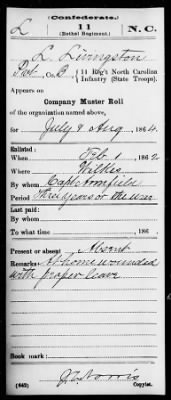 (Confederate.)
L 11 N. C.
(Bethel Regiment.)
L. Livingston
Pvt, Co. B, 11 Reg't North Carolina
Infantry (State Troops).
Appears on
Company Muster Roll
of the organization named above,
for July & Aug, 1864.
Enlisted:
When Feb. 1, 1862.
Where Wilkes
By whom Capt. Armfield
Period Three years or the war
Last paid:
By whom
To what time , 186 .
Present or absent Absent
Remarks: At home wounded
with proper leave
Book mark:
(642) Copyist.